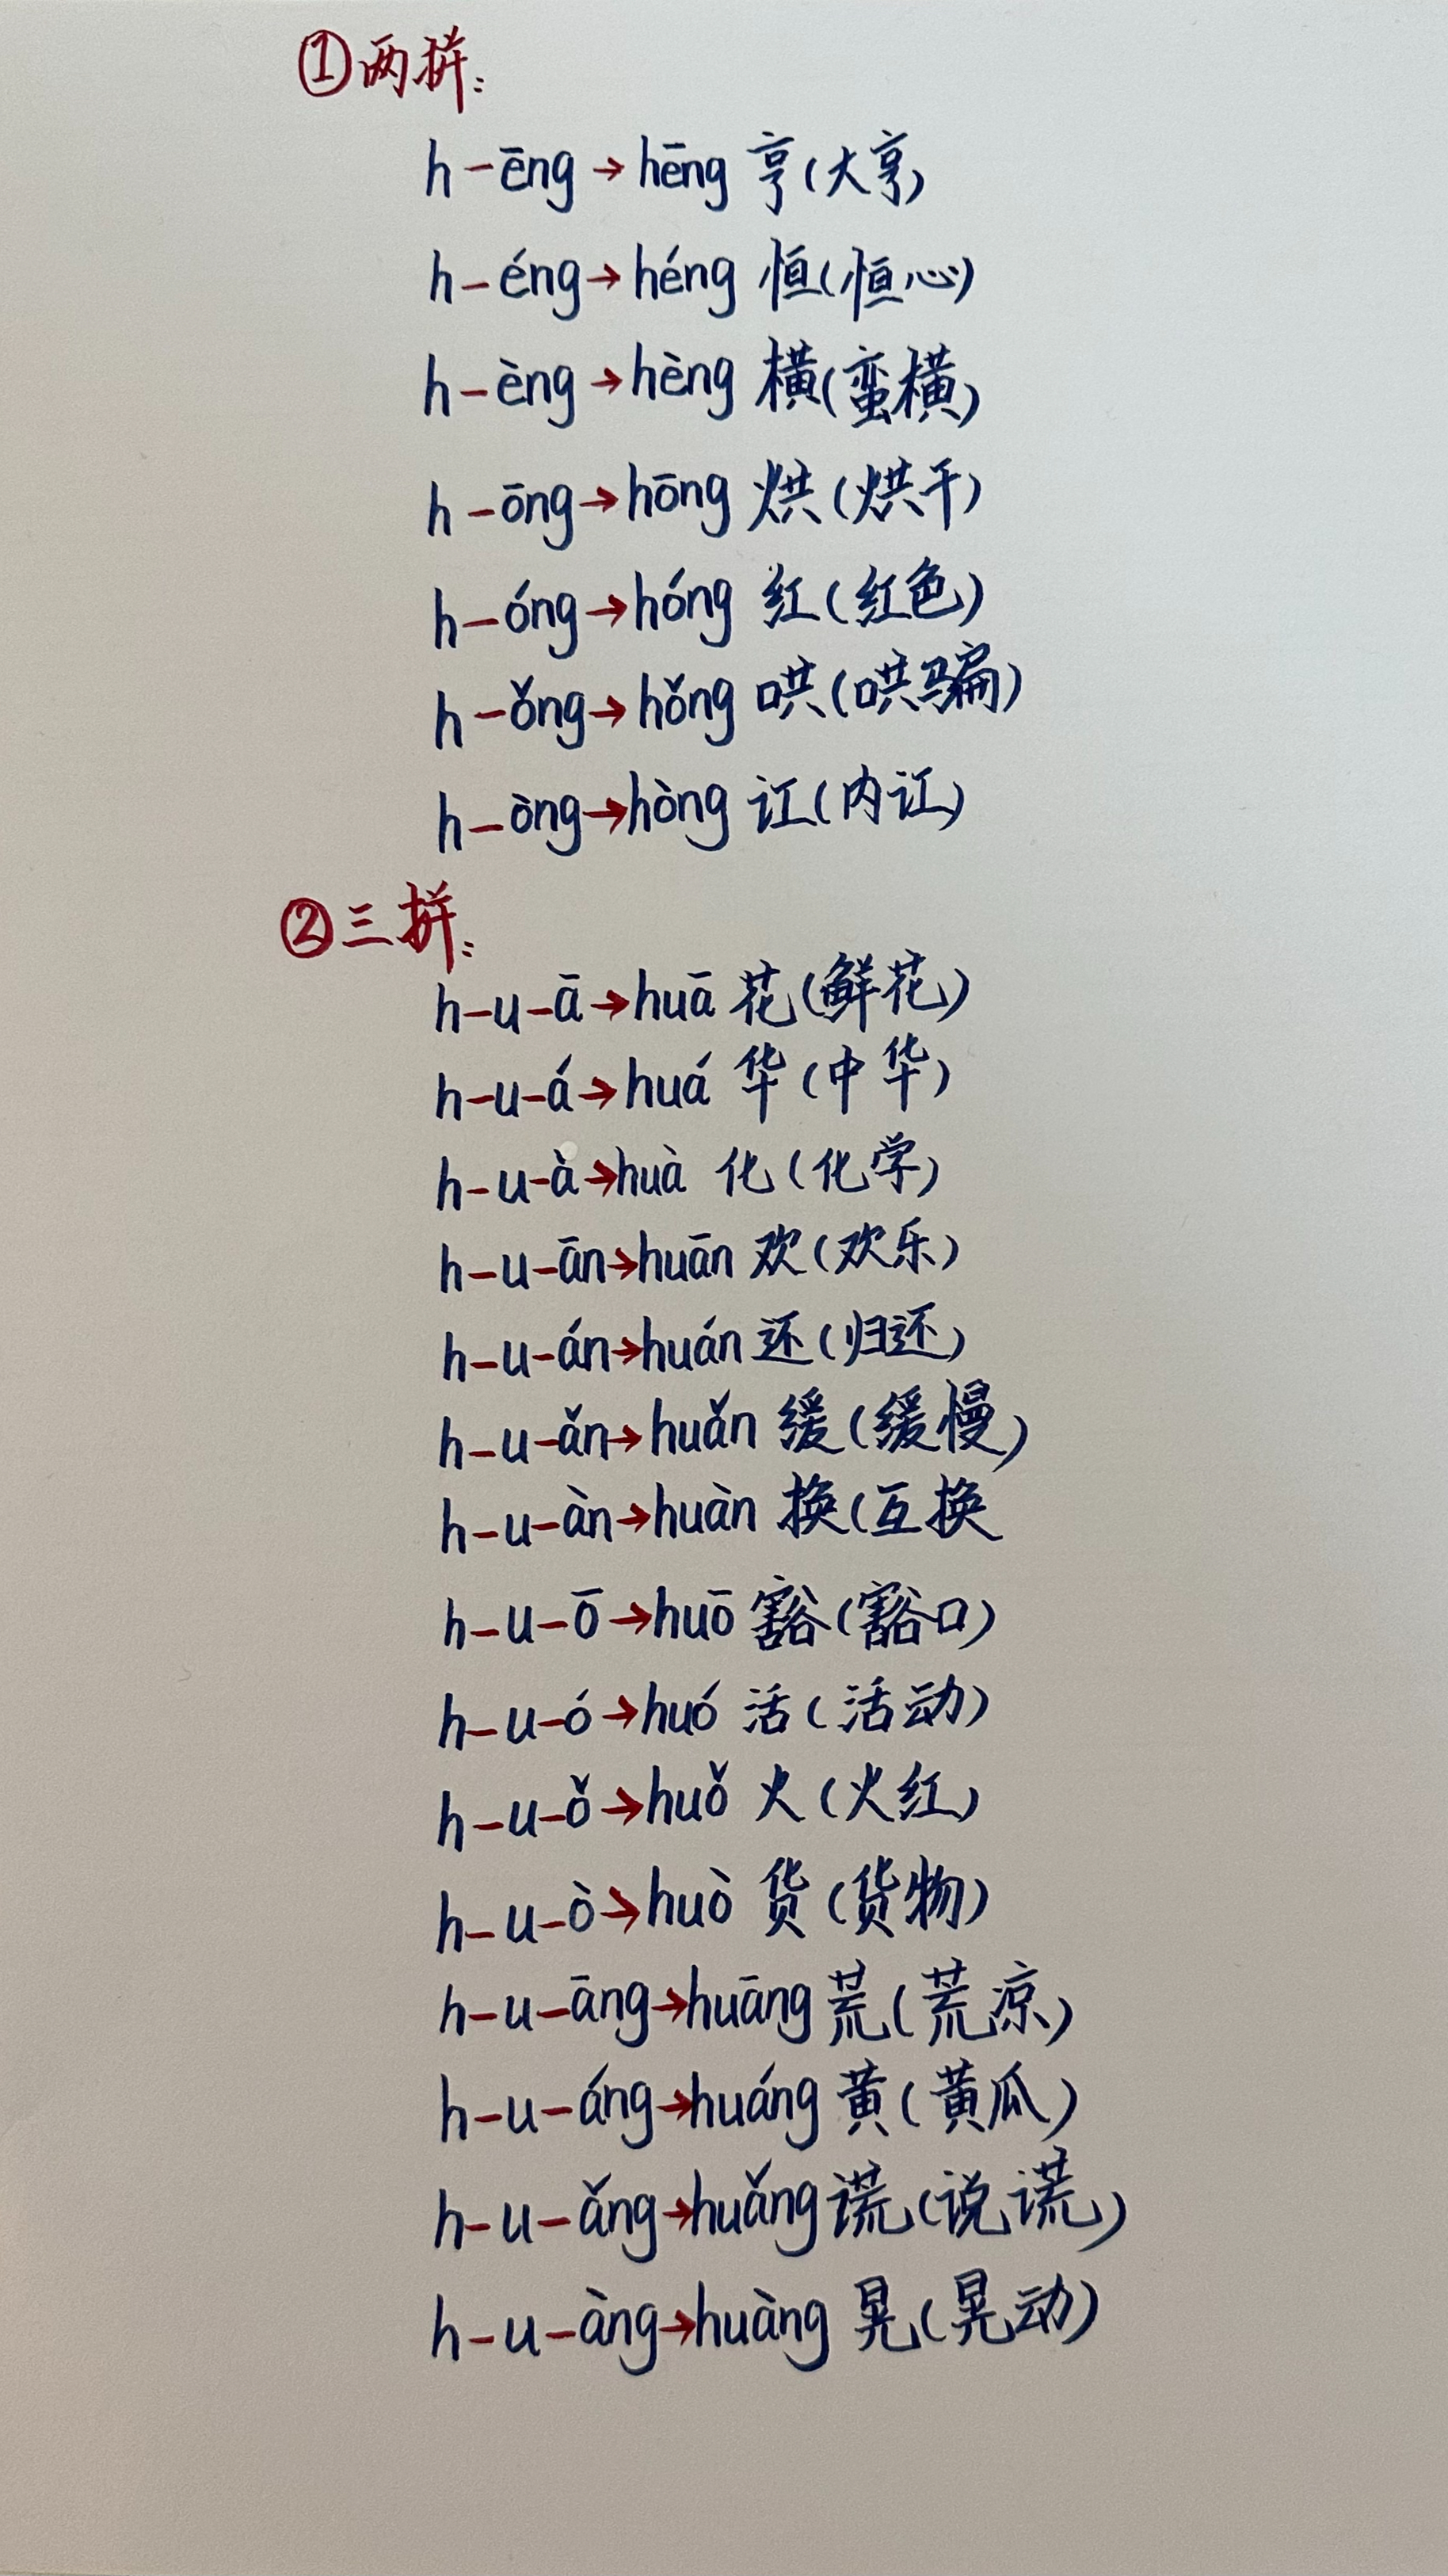 ①两拼:
h-ēng→hēng 亨(大亨)
h-éng→héng 恒(恒心)
h-èng→hèng 横(蛮横)
h-ōng→hōng 烘(烘干)
h-óng→hóng 红(红色)
h-ǒng→hǒng 哄(哄骗)
h-òng→hòng 讧(内讧)
②三拼:
h-u-ā→huā 花(鲜花)
h-u-á→huá 华(中华)
h-u-à→huà 化(化学)
h-u-ān→huān 欢(欢乐)
h-u-án→huán 还(归还)
h-u-ǎn→huǎn 缓(缓慢)
h-u-àn→huàn 换(互换
h-u-ō→huō 豁(豁口)
h-u-ó→huó 活(活动)
h-u-ǒ→huǒ 火(火红)
h-u-ò→huò 货(货物)
h-u-āng→huāng 荒(荒凉)
h-u-áng→huáng 黄(黄瓜)
h-u-ǎng→huǎng 谎(说谎)
h-u-àng→huàng 晃(晃动)